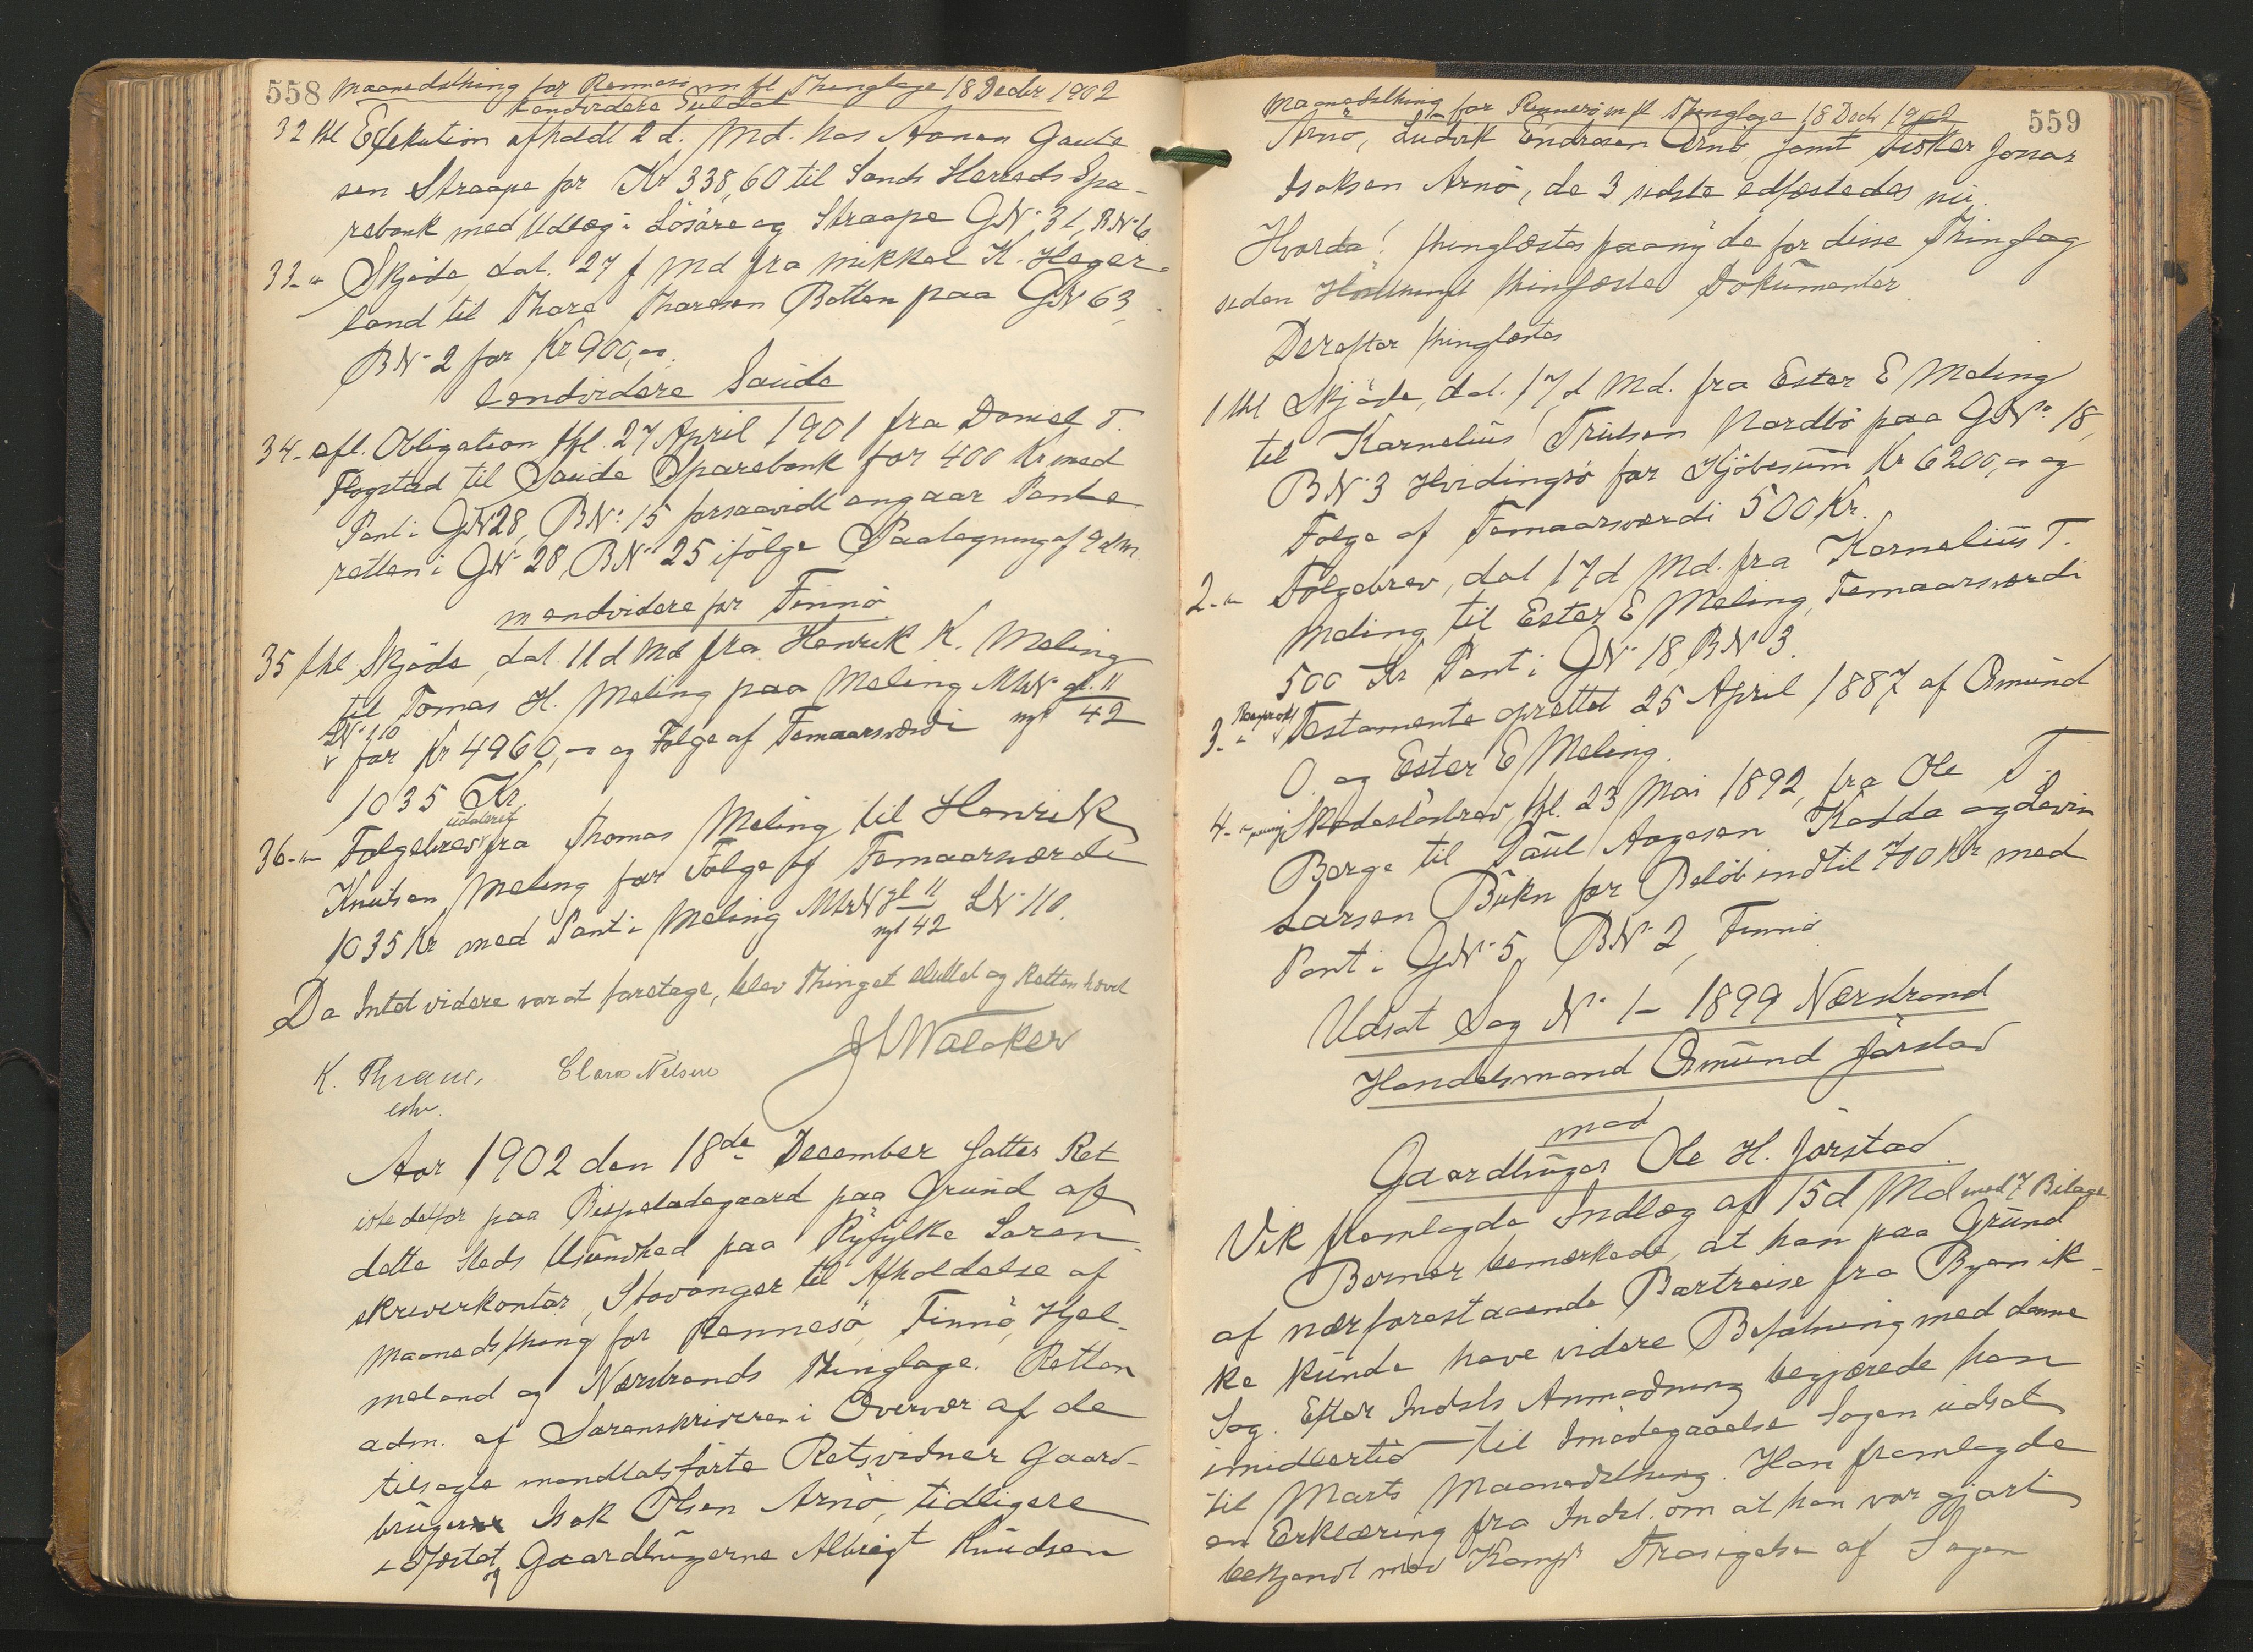 558 Maanedsthing for Rennesö m fl Thinglage 18 Decbr 1902
endvidere Suldal
32 thl Exekution afholdt 2 d. Md. hos Aanen Gaute
sen Straape for Kr 338,60 til Sands Herreds Spa-
rebank med Udlæg i Lösöre og Straape GN. 31, BN. 6
33 - " Skjöde, dat. 27 f Md fra Mikkel K. Heger-
land til Thore Thoresen Botten paa GN 63,
BN. 2 for Kr 900,00.
endvidere Saude
34 - afl. Obligation thl. 27 April 1901 fra Daniel T.
Flogstad til Saude Sparebank for 400 Kr med
Pant i GN 28, BN. 15 forsaavidt angaar Pante
retten i GN. 28 BN. 25 ifölge Paategning af 9 d Md.
endvidere for Finnö
35 thl Skjöde, dat. 11 d Md fra Henrik K. Meling
til Tomas H. Meling paa Meling MtrN. gl. 11
LN. 110 nyt 42
for Kr 4960,00 og Folge af Femaarsværdi
1035 Kr.
36 - " Folgebrev udateret fra Thomas Meling til Henrik
Knutsen Meling for Folge af Femaarsværdi
1035 Kr med Pant i Meling MtrN gl 11 LN. 110.
nyt 42
Da Intet videre var at foretage, blev Thinget sluttet og Retten hævet
J L Walaker
K. Thrane, Clara Nilsen
edsv.
Aar 1902 den 18de December sattes Ret
istedetfor paa Bispeladegaard paa Grund af
dette Steds Usundhed paa Ryfylke Soren-
skriverkontor, Stavanger til Afholdelse af
Maanedsthing for Rennesö, Finnö, Hjel-
meland og Nærstrands Thinglage. Retten
adm. af Sorenskriveren i Overvær af de
tilsagte mandtalsförte Retsvidner Gaard-
bruger Isak Olsen Arnö, tidligere
edfæstet, og Gaardbrugerne Albregt Knudsen
Maanedsthing for Rennesö m fl Thinglage 18 Decb 1902 559
Arnö, Ludvik Endresen Arnö samt Fisker Jonas
Isaksen Arnö, de 3 sidste edfæstedes nu.
Hvorda! thinglæstes paany de for disse Thinglag
siden Höstthinget thinglæste Dokumenter
Derefter thinglæstes
1 thl Skjöde, dat. 17 d Md. fra Ester E Meling
til Kornelius Trulsen Nordbö paa GN. 18,
BN. 3 Hvidingsö for Kjöbesum Kr 6200,00 og
Folge af Femaarsværdi 500 Kr.
2 - " Folgebrev, dat 17 d Md. fra Kornelius T.
Meling til Ester E Meling, Femaarsværdi
500 Kr Pant i GN. 18, BN. 3.
3 - " Testamente oprettet 25 April 1887 af Osmund
O. og Ester E Meling.
4 - " Skadeslösbrev, thl. 23 Mai 1892, fra Ole T.
Berge til Paul Aagesen Kodda og Levin
Larsen Bukn for Belöb indtil 700 Kr med
Pant i GN. 5, BN. 2, Finnö
Udsat Sag N. 1 - 1899 Nærstrand
Handelsmand Osmund Jörstad
mod
Gaardbruger Ole H. Jörstad.
Vik fremlagde Indlæg af 15 d Md med 7 Bilage.
Berner bemærkede, at han paa Grund
af nærforestaaende Bortreise fra Byen ik-
ke kunde have videre Befatning med denne
Sag. Efter Indsts Anmodning begjærede han
imidlertid til Imödegaaelse Sagen udsat
til Marts Maanedsthing. Han fremlagde
en Erklæring fra Indst. om at han var gjort
bekjendt med Kamps Frasigelse af Sagen